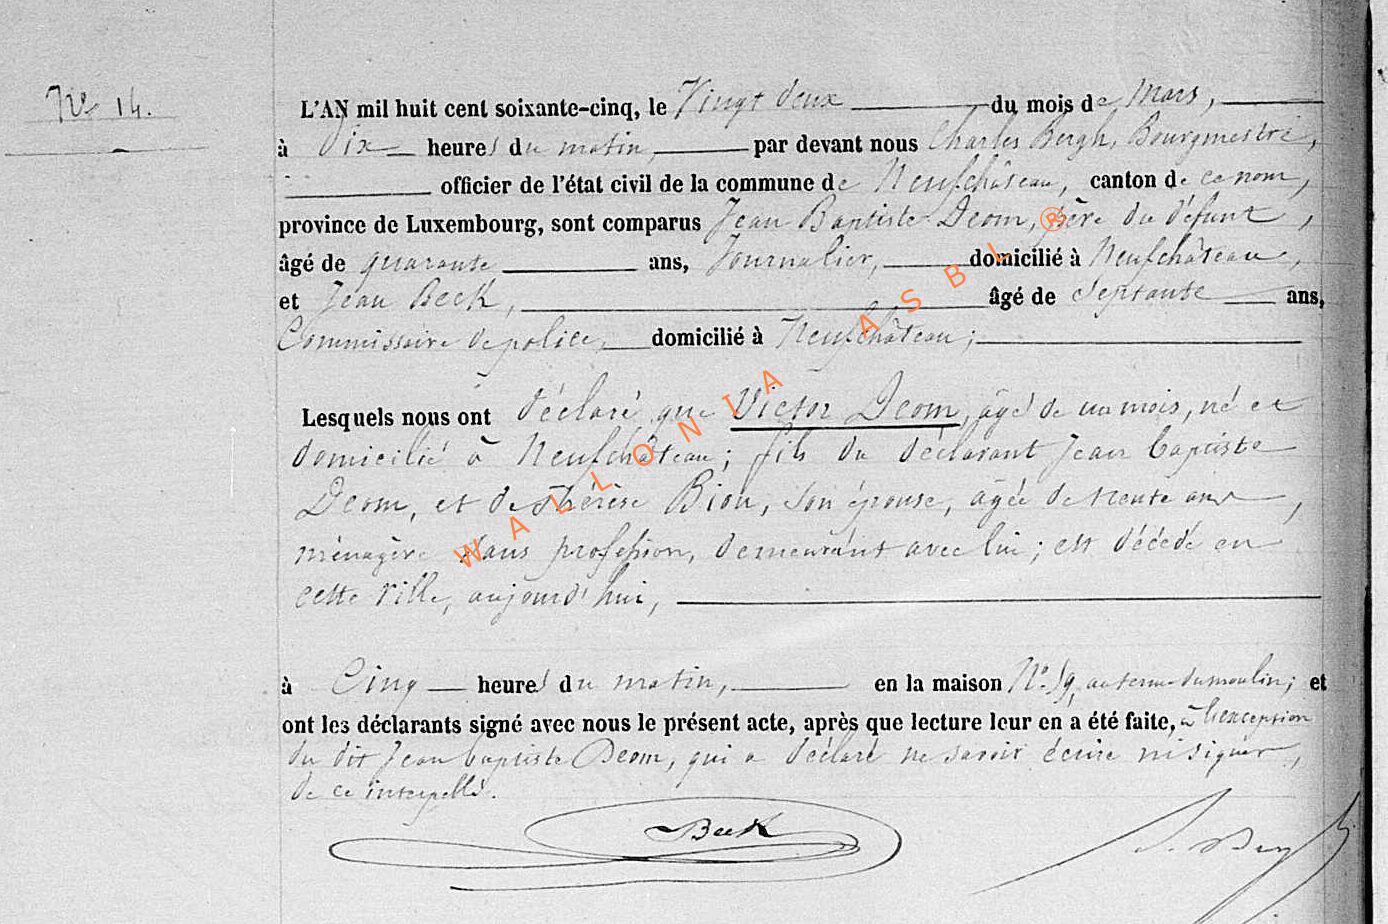 No 14.
L'AN mil huit cent soixante-cinq, le Vingt deux du mois de Mars,
à Dix heures du matin, par devant nous Charles Bergh, Bourgmestre,
officier de l'état civil de la commune de Neufchâteau, canton de ce nom,
province de Luxembourg, sont comparus Jean Baptiste Deom, père du défunt,
âgé de quarante ans, Journalier, domicilié à Neufchâteau,
et Jean Beck, âgé de septante ans,
Commissaire de police, domicilié à Neufchâteau;
Lesquels nous ont déclaré que Victor Deom, âgé de un mois, né et
domicilié à Neufchâteau; fils du déclarant Jean baptiste
Deom, et de Thérèse Bion, son épouse, âgée de trente ans,
ménagère sans profession, demeurant avec lui; est décédé en
cette ville, aujourd'hui,
à Cinq heures du matin, en la maison No 59, au terme du moulin; et
ont les déclarants signé avec nous le présent acte, après que lecture leur en a été faite, à l'exception
du dit Jean baptiste Deom, qui a déclaré ne savoir écrire ni signer,
de ce interpellé.
Beck
WALLONIA ASBL ®